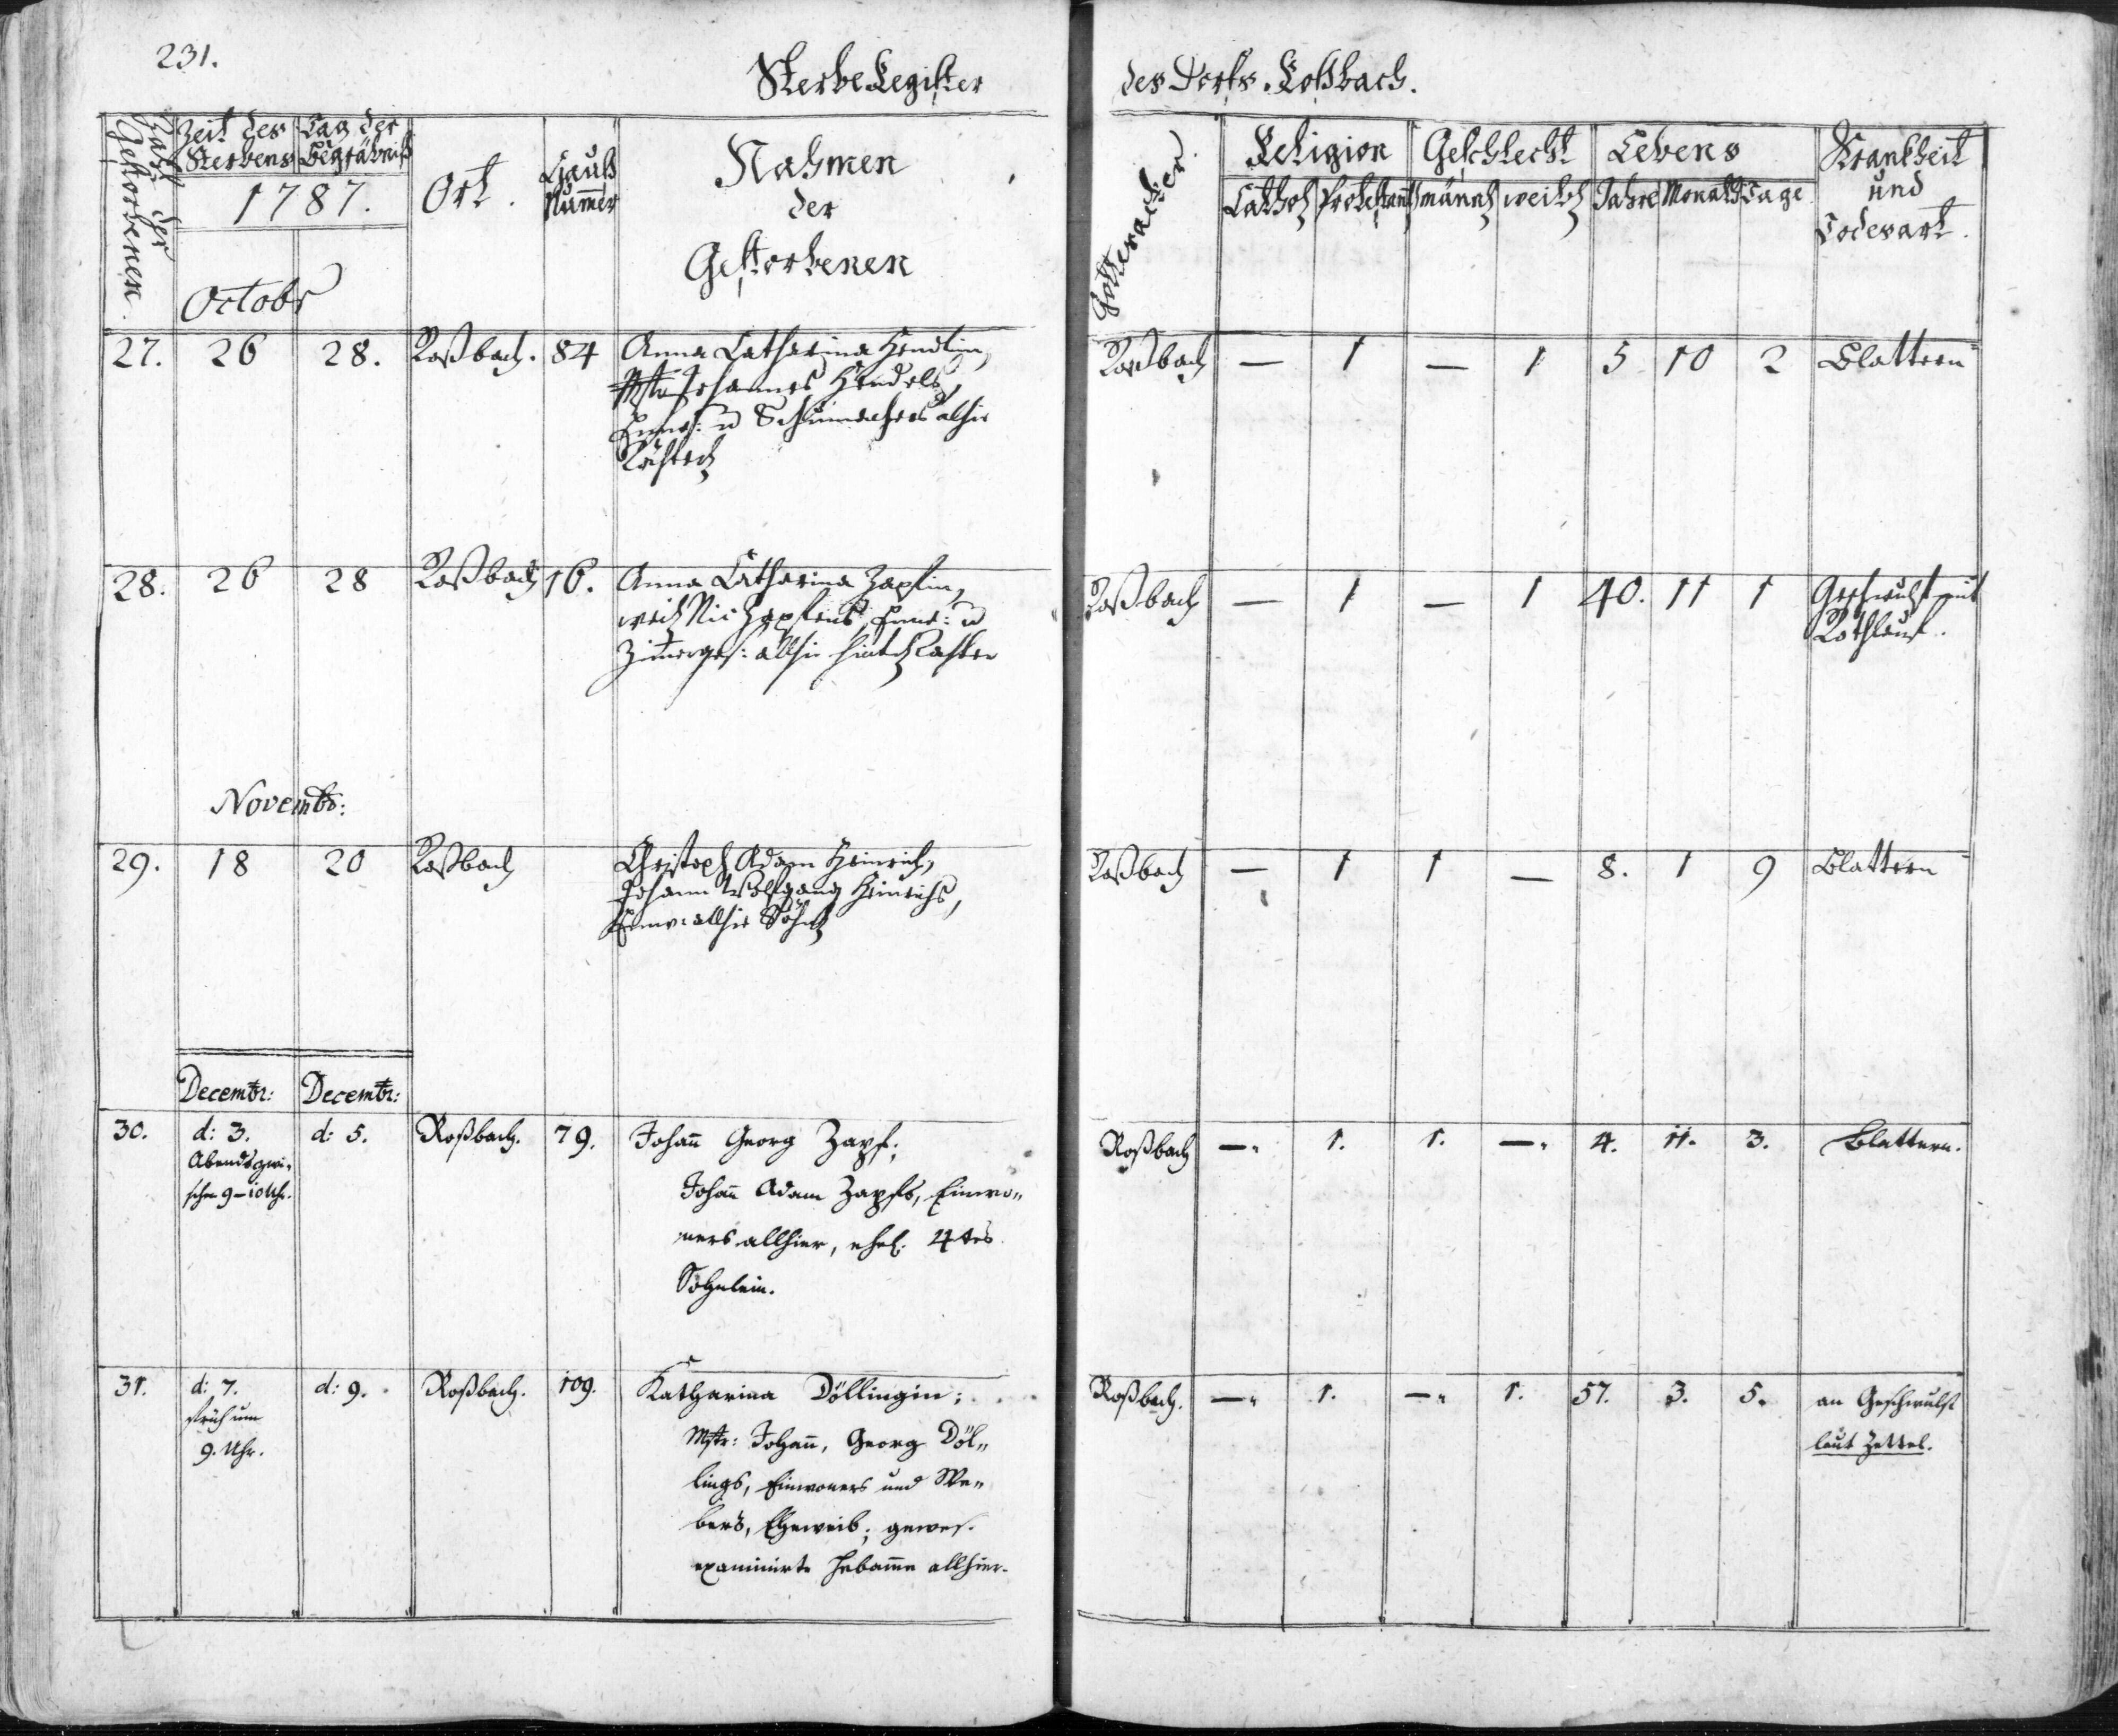 231.
Sterbe Register
des Dorfs Roßbach.
Zahl der Gestorbenen.
Zeit des Sterbens
Tag der Begräbniß
1787.
Octobr
Ort.
Hauß Numer
Nahmen
der
Gestorbenen
Gottesacker.
Religion
Cathol
Protestant
Geschlecht
männl
weibl
Lebens
Jahre
Monath
Tage
Krankheit
und
Todesart.
27. 26 28. Roßbach. 84 Anna Catharina Hendlin,
Mstr Johannes Hendels,
Einw: u Schumachers alhie
Töchterl
Roßbach — 1 — 1 5 10 2 Blattern
28. 26 28 Roßbach 16. Anna Catharina Zapfin,
weil Nic Zapfens, Einw: u
Zimerges: allhie
Roßbach — 1 — 1 40. 11 1 Geschwulst mit
Rothlauf.
Novembr:
29. 18 20 Roßbach Christoph Adam Heinrich,
Johann Wolfgang Heinrichs,
Einw: allhie Söhnl
Roßbach — 1 1 — 8. 1 9 Blattern
Decembr: Decembr:
30. d: 3. d: 5. Roßbach. 79. Johañ Georg Zapf;
Abends zwi-
schen 9–10 Uhr.
Johañ Adam Zapfs, Einwo„
ners allhier, ehel. 4tes
Söhnlein.
Roßbach —„ 1. 1. —„ 4. 11. 3. Blattern.
31. d: 7. d: 9. Roßbach. 109. Katharina Döllingin;
früh um
9. Uhr.
Mstr: Johañ, Georg Döl„
lings, Einwoners und We„
bers, Eheweib; gewes.
examinirte Hebam̃e allhier.
Roßbach. —„ 1. —„ 1. 57. 3. 5. an Geschwulst
laut Zettel.